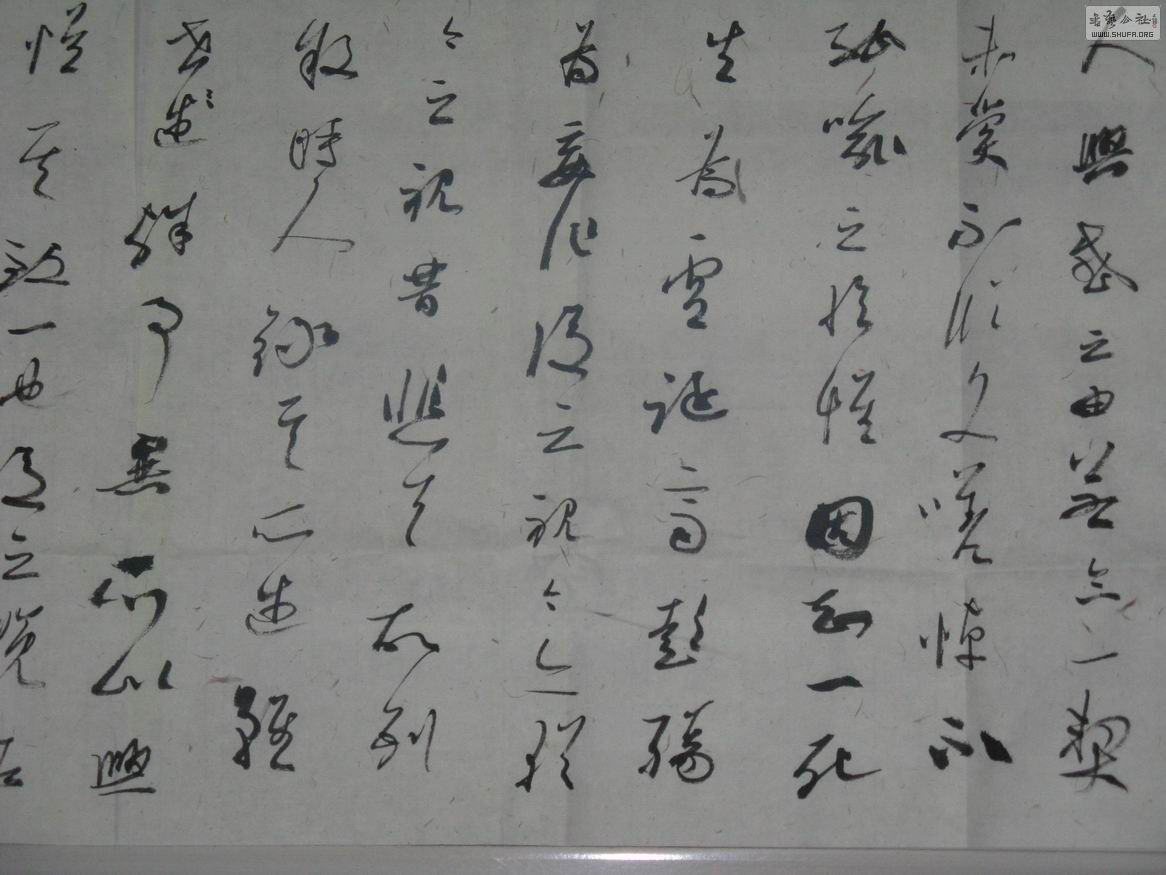 人興感之由若合一契
未嘗不臨文嗟悼不
能喻之於懷固知一死
生為虛誕齊彭殤
為妄作後之視今亦猶
今之視昔悲夫故列
敘時人錄其所述雖
世述殊事異所以興
懷其致一也後之覽者
書藝公社
WWW.SHUFA.ORG